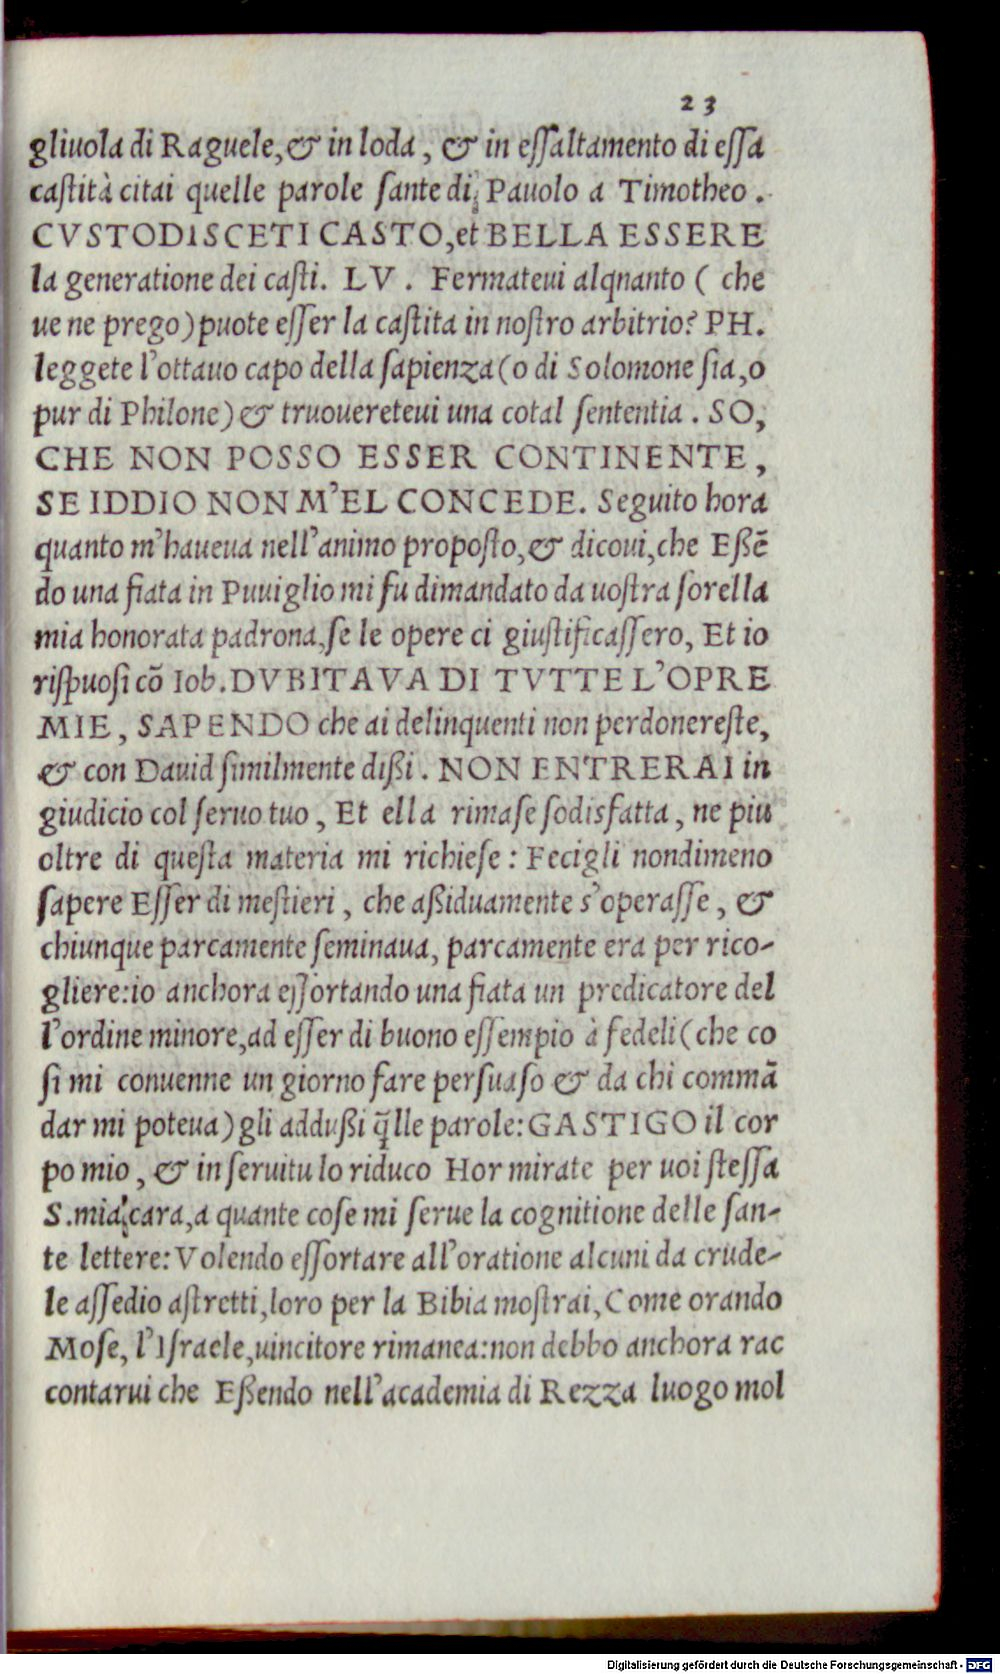 23
gliuola di Raguele, & in loda, & in essaltamento di essa
castità citai quelle parole sante di Pauolo a Timotheo.
CVSTODISCETI CASTO, et BELLA ESSERE
la generatione dei casti. LV. Fermateui alqnanto ( che
ue ne prego) puote esser la castita in nostro arbitrio? PH.
leggete l'ottauo capo della sapienza (o di Solomone sia, o
pur di Philone) & truouereteui una cotal sententia. SO,
CHE NON POSSO ESSER CONTINENTE,
SE IDDIO NON M'EL CONCEDE. Seguito hora
quanto m'haueua nell'animo proposto, & dicoui, che Eßẽ
do una fiata in Puuiglio mi fu dimandato da uostra sorella
mia honorata padrona, se le opere ci giustificassero, Et io
rispuosi cõ Iob. DVBITAVA DI TVTTE L'OPRE
MIE, SAPENDO che ai delinquenti non perdonereste,
& con Dauid similmente dißi. NON ENTRERAI in
giudicio col seruo tuo, Et ella rimase sodisfatta, ne piu
oltre di questa materia mi richiese: Fecigli nondimeno
sapere Esser di mestieri, che aßiduamente s'operasse, &
chiunque parcamente seminaua, parcamente era per rico-
gliere: io anchora essortando una fiata un predicatore del
l'ordine minore, ad esser di buono essempio à fedeli (che co
si mi conuenne un giorno fare persuaso & da chi commã
dar mi poteua) gli addußi q̃lle parole: GASTIGO il cor
po mio, & in seruitu lo riduco Hor mirate per uoi stessa
S. mia cara, a quante cose mi serue la cognitione delle san-
te lettere: Volendo essortare all'oratione alcuni da crude-
le assedio astretti, loro per la Bibia mostrai, Come orando
Mose, l'Israele, uincitore rimanea: non debbo anchora rac
contarui che Eßendo nell'academia di Rezza luogo mol
Digitalisierung gefördert durch die Deutsche Forschungsgemeinschaft - DFG